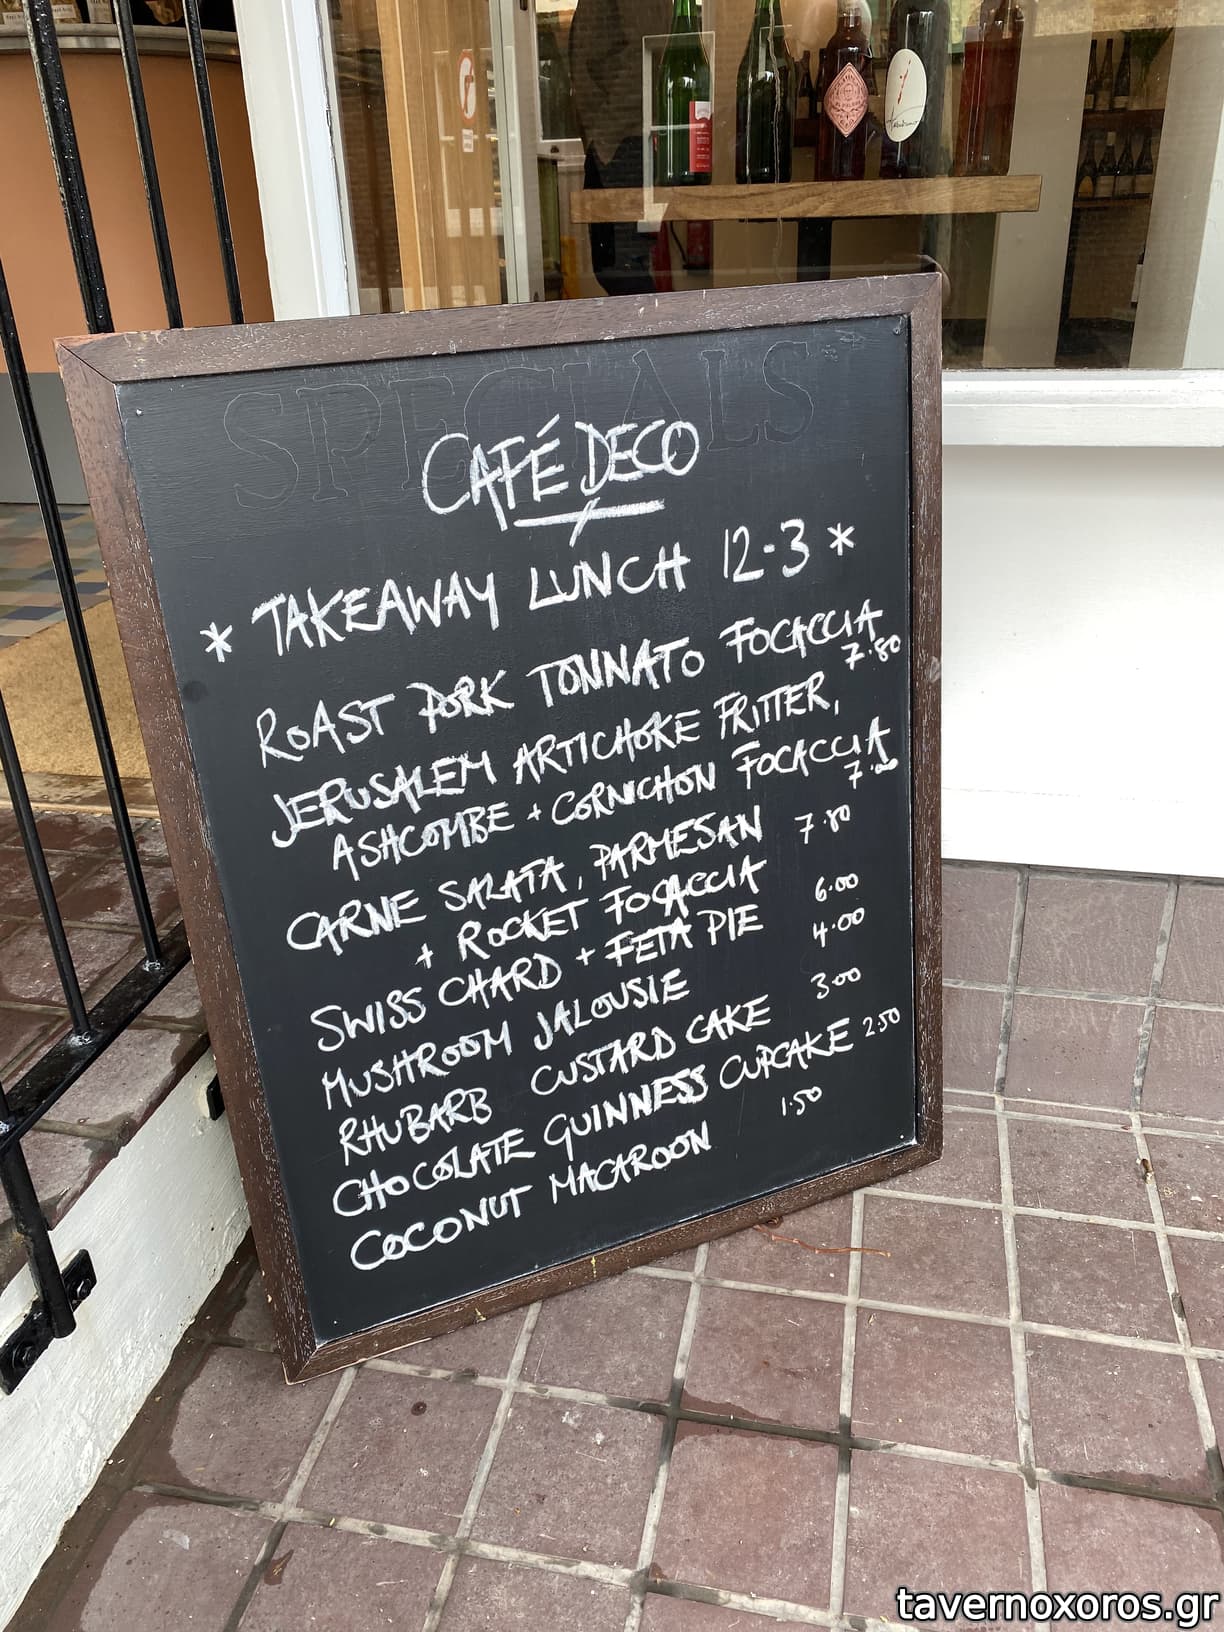 SPECIALS
CAFÉ DECO
* TAKEAWAY LUNCH 12-3 *
ROAST PORK TONNATO FOCACCIA
7.80
JERUSALEM ARTICHOKE FRITTER,
ASHCOMBE + CORNICHON FOCACCIA
CARNE SALATA, PARMESAN 7.80
+ ROCKET FOCACCIA
SWISS CHARD + FETA PIE 6.00
MUSHROOM JALOUSIE 4.00
RHUBARB CUSTARD CAKE 3.00
CHOCOLATE GUINNESS CUPCAKE 2.50
COCONUT MACAROON 1.50
tavernoxoros.gr